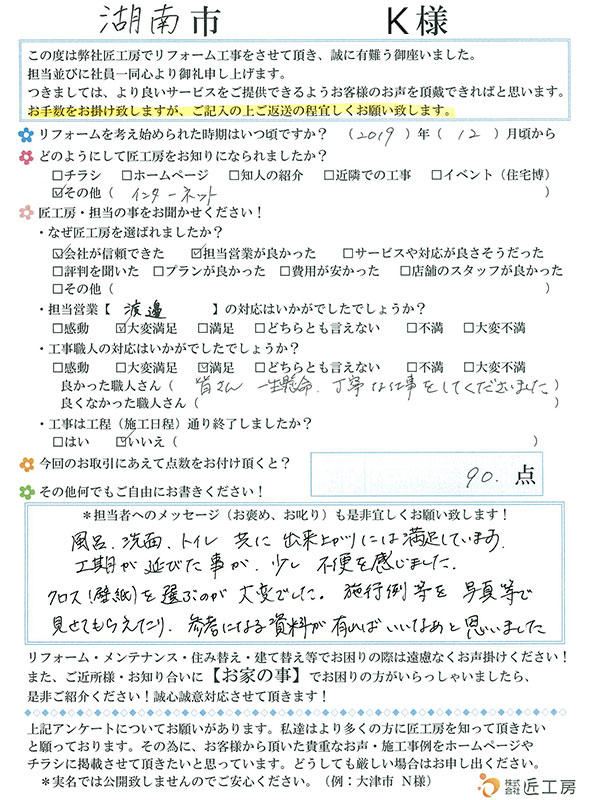 湖南市　K様
この度は弊社匠工房でリフォーム工事をさせて頂き、誠に有難う御座いました。
担当並びに社員一同心より御礼申し上げます。
つきましては、より良いサービスをご提供できるようお客様のお声を頂戴できればと思います。
お手数をお掛け致しますが、ご記入の上ご返送の程宜しくお願い致します。
リフォームを考え始められた時期はいつ頃ですか？（2019）年（12）月頃から
どのようにして匠工房をお知りになられましたか？
□チラシ　□ホームページ　□知人の紹介　□近隣での工事　□イベント（住宅博）
☑その他（インターネット）
匠工房・担当の事をお聞かせください！
・なぜ匠工房を選ばれましたか？
☑会社が信頼できた　☑担当営業が良かった　□サービスや対応が良さそうだった
□評判を聞いた　□プランが良かった　□費用が安かった　□店舗のスタッフが良かった
□その他（　）
・担当営業【渡邉】の対応はいかがでしたでしょうか？
□感動　☑大変満足　□満足　□どちらとも言えない　□不満　□大変不満
・工事職人の対応はいかがでしたでしょうか？
□感動　□大変満足　☑満足　□どちらとも言えない　□不満　□大変不満
良かった職人さん（皆さん 一生懸命、丁寧な仕事をしてくださいました）
良くなかった職人さん（　）
・工事は工程（施工日程）通り終了しましたか？
□はい　☑いいえ（　）
今回のお取引にあえて点数をお付け頂くと？　90.点
その他何でもご自由にお書きください！
＊担当者へのメッセージ（お褒め、お叱り）も是非宜しくお願い致します！
風呂、洗面、トイレ 共に 出来上がりには満足しています。
工期が延びた事が、少し 不便を感じました。
クロス（壁紙）を選ぶのが 大変でした。施行例等を 写真等で
見せてもらえたり、参考になる資料が有ればいいなあと思いました
リフォーム・メンテナンス・住み替え・建て替え等でお困りの際は遠慮なくお声掛けください！
また、ご近所様・お知り合いに【お家の事】でお困りの方がいらっしゃいましたら、
是非ご紹介ください！誠心誠意対応させて頂きます！
上記アンケートについてお願いがあります。私達はより多くの方に匠工房を知って頂きたい
と願っております。その為に、お客様から頂いた貴重なお声・施工事例をホームページや
チラシに掲載させて頂きたいと思っています。どうしても厳しい場合はお申し出ください。
＊実名では公開致しませんのでご安心ください。（例：大津市 N様）
株式会社 匠工房